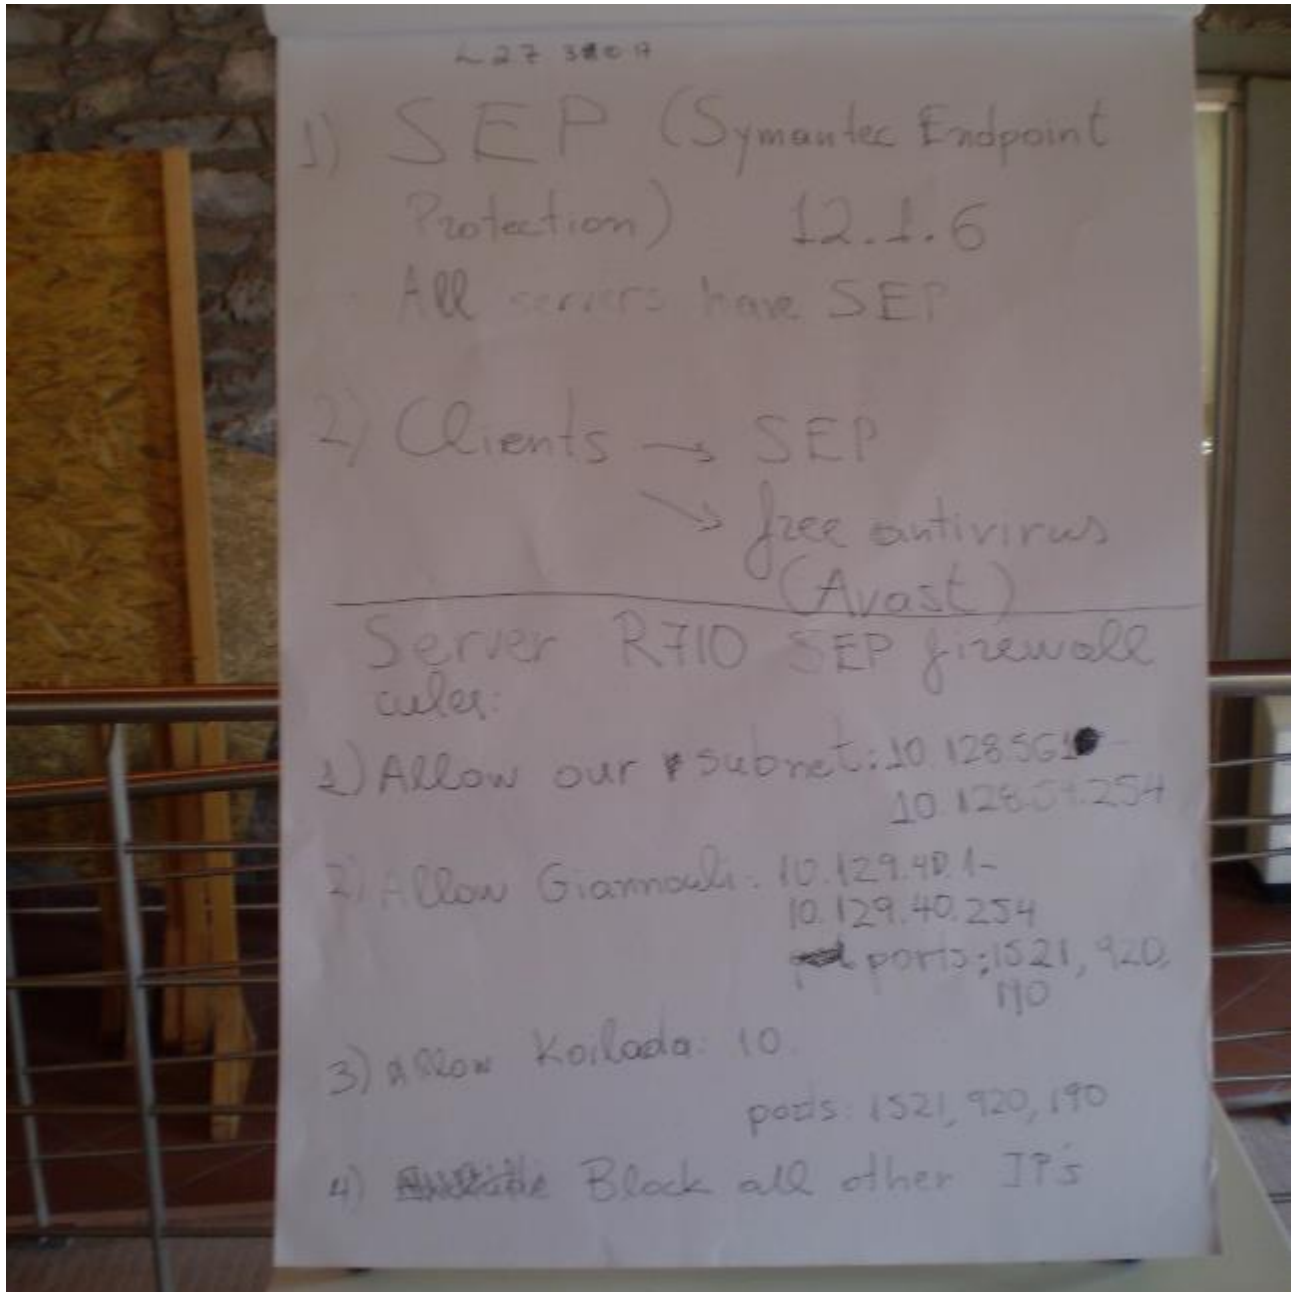 1) SEP (Symantec Endpoint
Protection) 12.1.6
All servers have SEP
2) Clients → SEP
↘ free antivirus
(Avast)
Server R710 SEP firewall
rules:
1) Allow our subnet: 10.128.56.1 -
10.128.57.254
2) Allow Giannouli: 10.129.40.1-
10.129.40.254
ports: 1521, 920,
190
3) Allow Koilada: 10.
ports: 1521, 920, 190
4) Block all other IP's